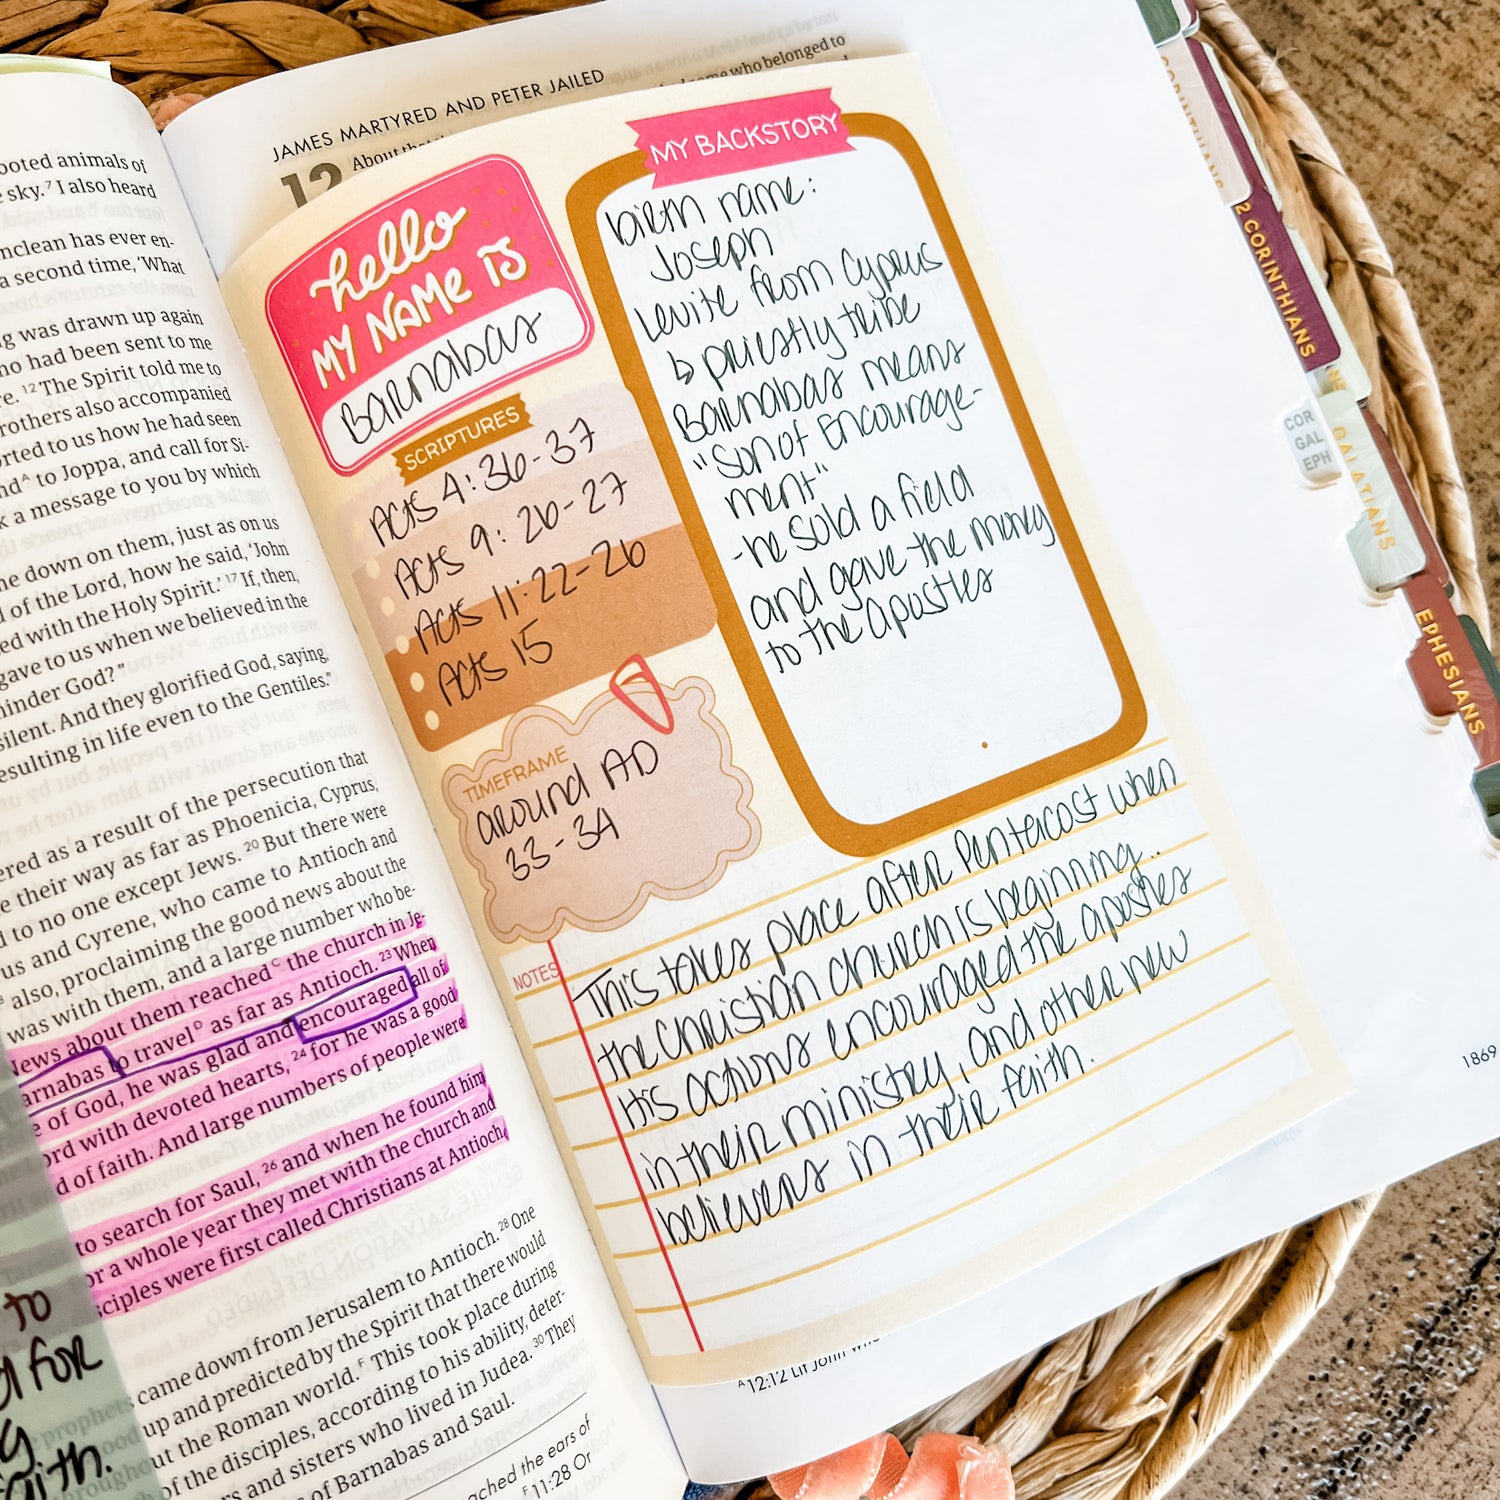 ooted animals of
sky.⁷ I also heard
nclean has ever en-
a second time, ‘What
g was drawn up again
ho had been sent to me
re. ¹² The Spirit told me to
rothers also accompanied
orted to us how he had seen
nd ᴬ to Joppa, and call for Si-
k a message to you by which
me down on them, just as on us
d of the Lord, how he said, ‘John
ed with the Holy Spirit.’ ¹⁷ If, then,
gave to us when we believed in the
hinder God?”
silent. And they glorified God, saying,
esulting in life even to the Gentiles.”
ered as a result of the persecution that
e their way as far as Phoenicia, Cyprus,
d to no one except Jews. ²⁰ But there were
us and Cyrene, who came to Antioch and
also, proclaiming the good news about the
was with them, and a large number who be-
Jews about them reached ᶜ the church in Je-
arnabas to travel ᴰ as far as Antioch. ²³ When
e of God, he was glad and encouraged all of
ord with devoted hearts, ²⁴ for he was a good
d of faith. And large numbers of people were
to search for Saul, ²⁶ and when he found him
or a whole year they met with the church and
sciples were first called Christians at Antioch.
came down from Jerusalem to Antioch. ²⁸ One
up and predicted by the Spirit that there would
out the Roman world. ᶠ This took place during
of the disciples, according to his ability, deter-
rs and sisters who lived in Judea. ³⁰ They
s of Barnabas and Saul.
ached the ears of
ᶠ 11:28 Or
to
for
aith.
JAMES MARTYRED AND PETER JAILED
12 About that
me who belonged to
hello
MY NAME IS
Barnabas
SCRIPTURES
Acts 4:36-37
Acts 9:26-27
Acts 11:22-26
Acts 15
TIMEFRAME
around AD
33-34
MY BACKSTORY
birth name:
Joseph
Levite from Cyprus
↳ priestly tribe
Barnabas means
"Son of Encourage-
ment"
-he sold a field
and gave the money
to the apostles
NOTES
This takes place after Pentecost when
the Christian church is beginning..
His actions encouraged the apostles
in their ministry, and other new
believers in their faith.
ᴬ 12:12 Lit John
1869
2 CORINTHIANS
COR
GAL
EPH
GALATIANS
EPHESIANS